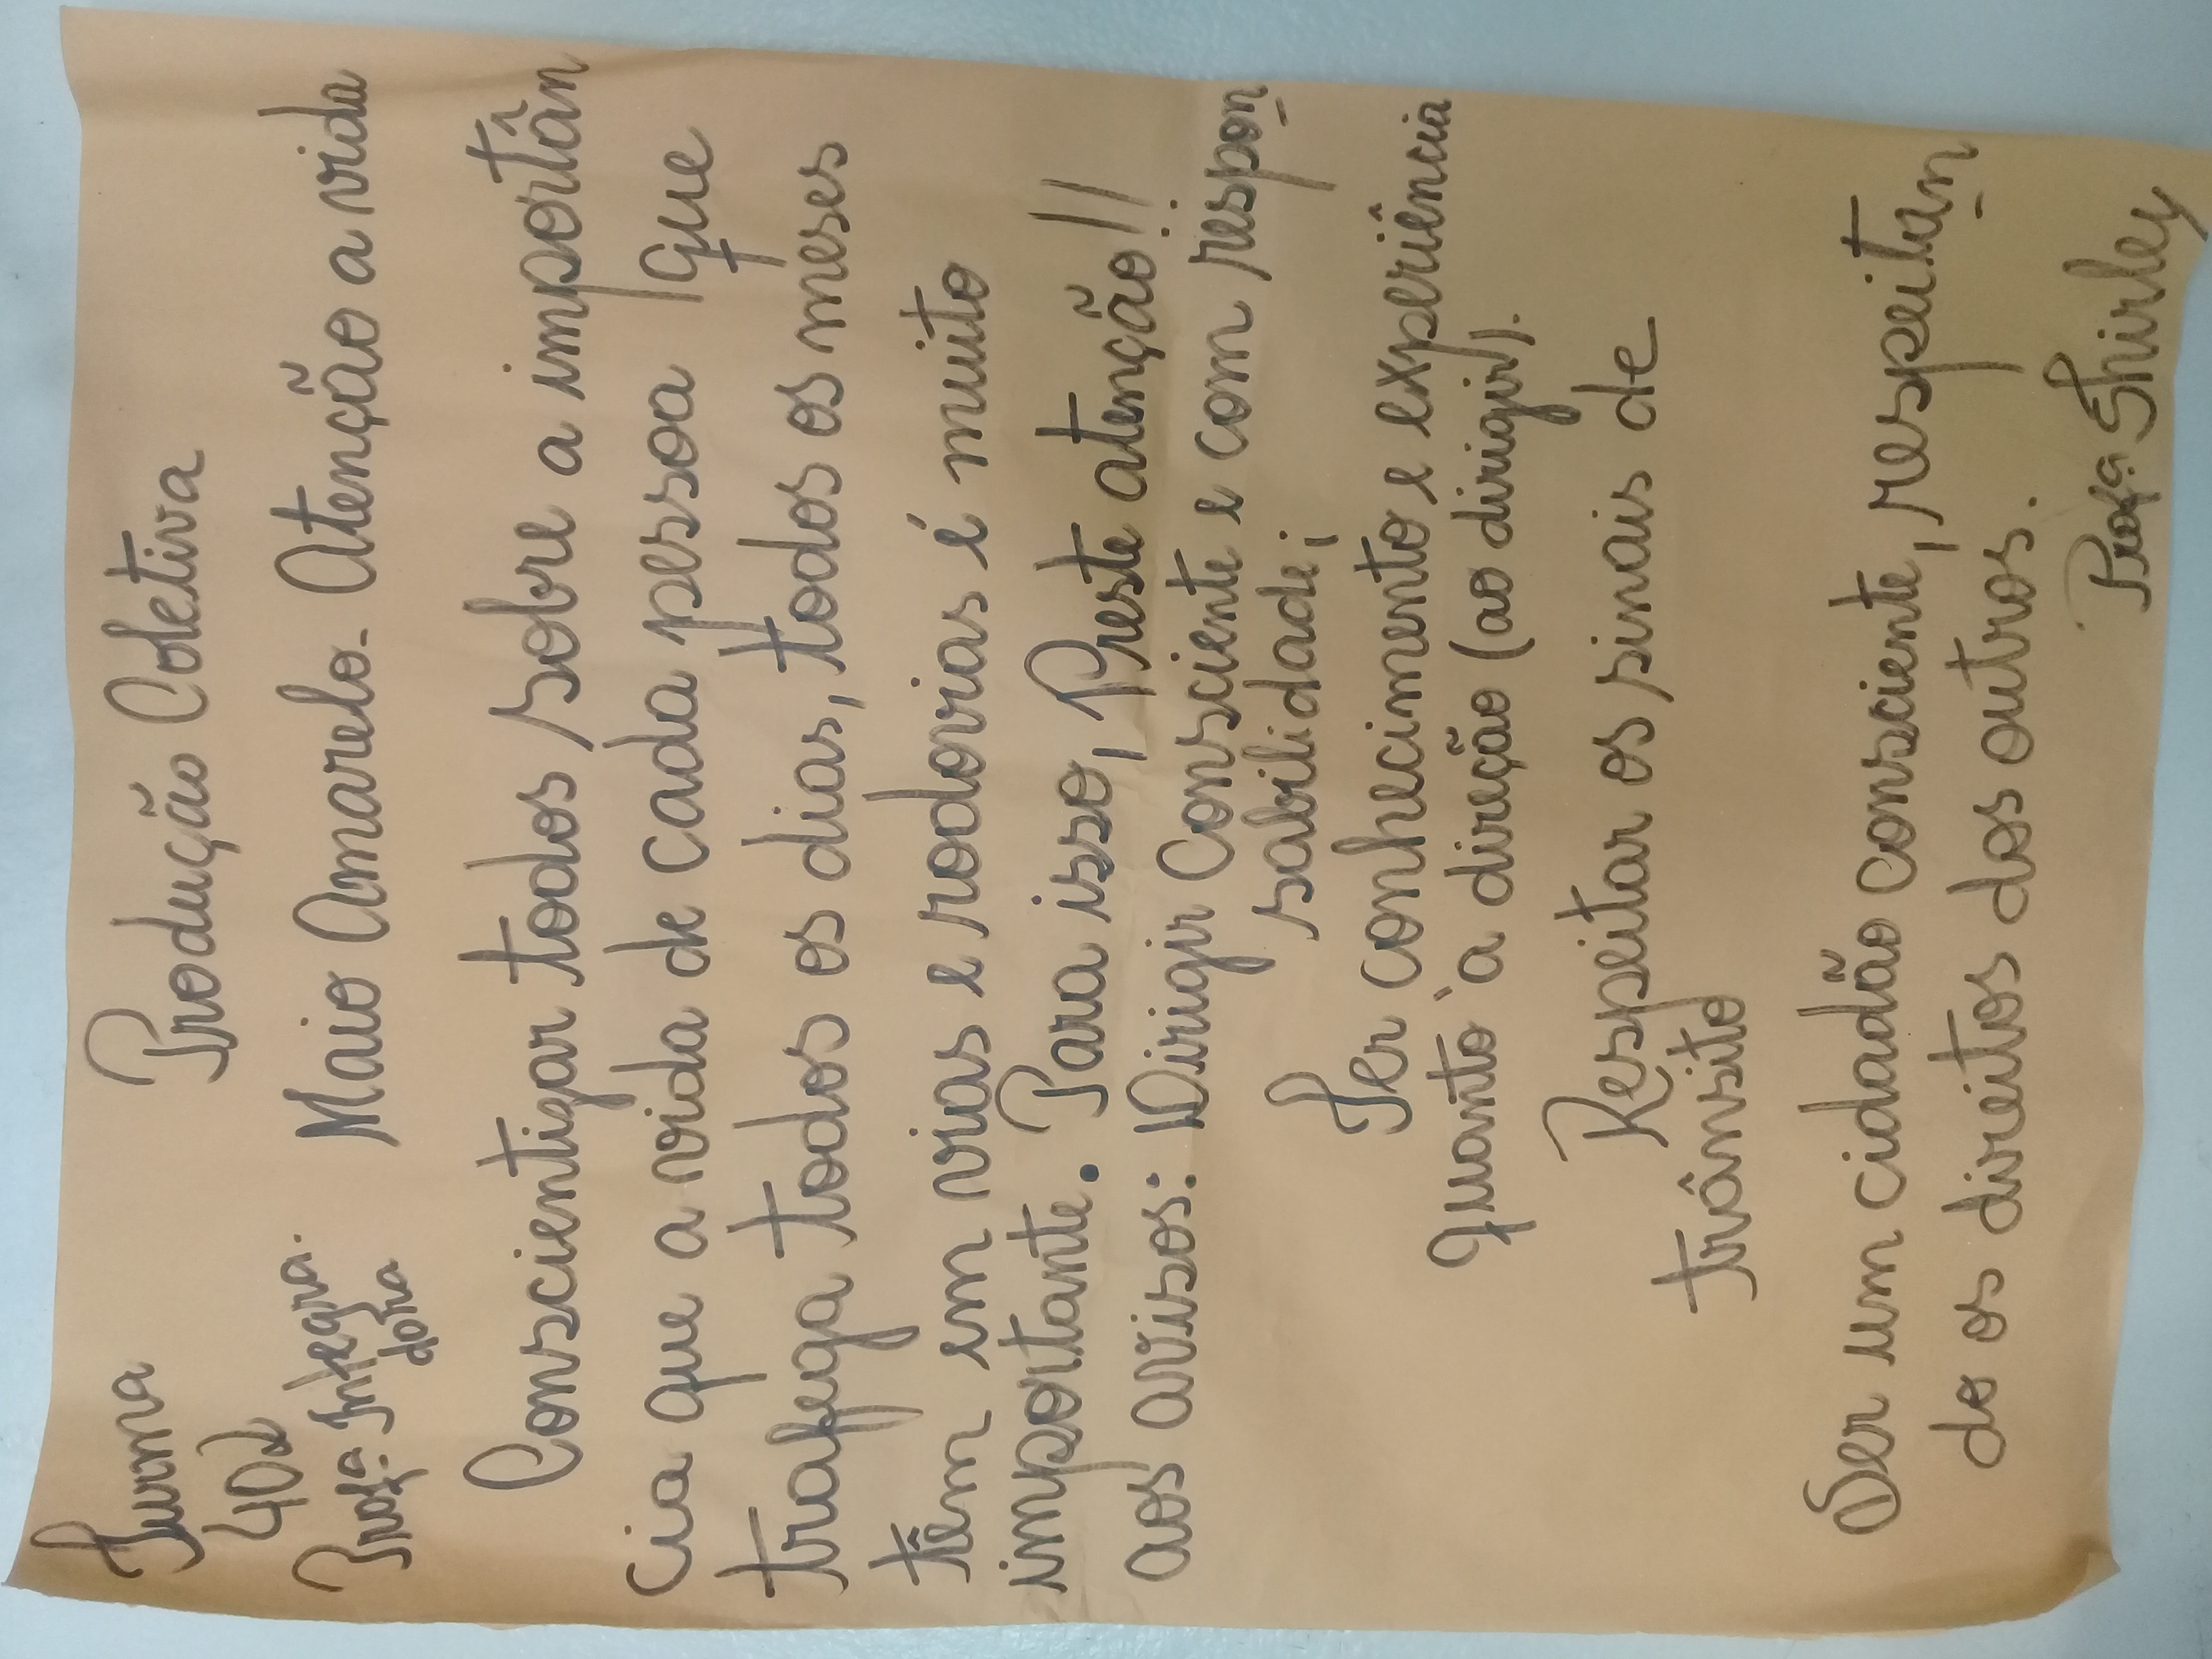 Turma Produção Coletiva
402
Profª. Integra. Maio Amarelo. Atenção a vida
dora
Conscientizar todos sobre a importân
cia que a vida de cada pessoa que
trafega todos os dias, todos os meses
têm em vias e rodovias é muito
importante. Para isso, Preste atenção!!
aos avisos: Dirigir Consciente e com respon
sabilidade;
Ter conhecimento e experiência
quanto à direção (ao dirigir).
Respeitar os sinais de
trânsito
Ser um cidadão consciente, respeitan
do os direitos dos outros.
Profª. Shirley